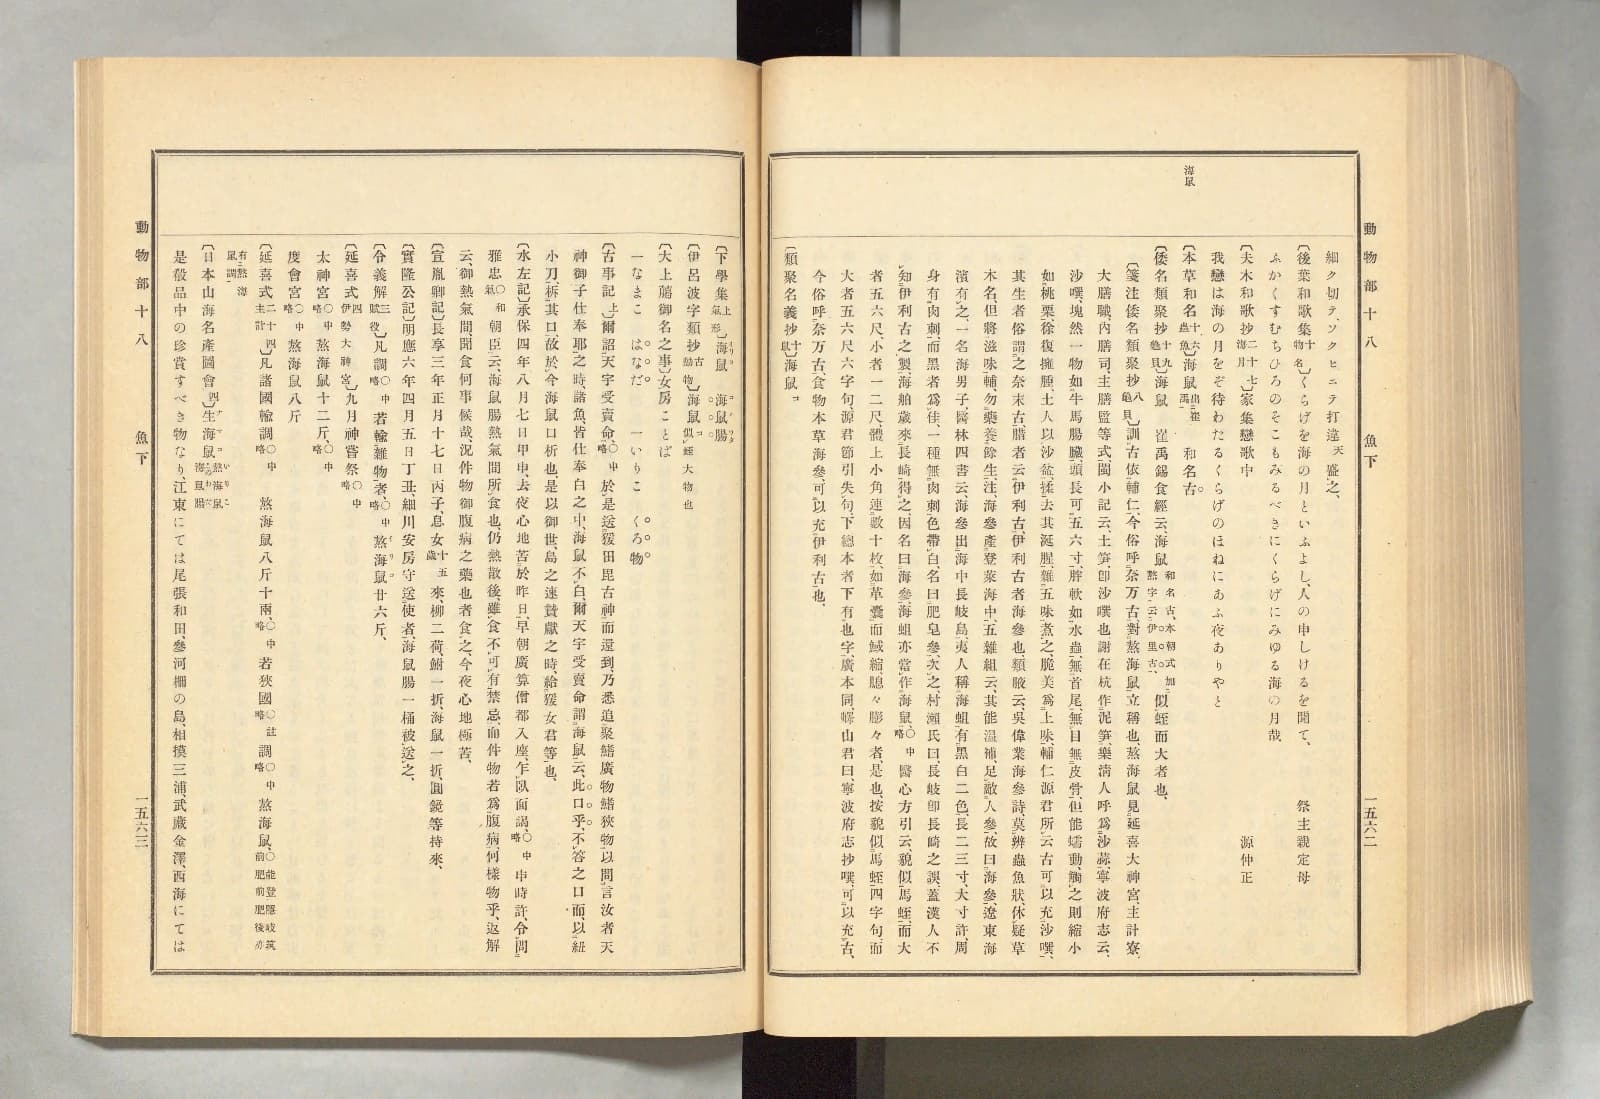 動物部十八　魚下　一五六二
海鼠
細ク切テ、ソクヒニテ打違天盛之、
〔後葉和歌集十物名〕くらげを海の月といふよし、人の申しけるを聞て、　祭主親定母
ふかくすむちひろのそこもみるべきにくらげにみゆる海の月哉
〔夫木和歌抄二十七海月〕家集戀歌中　源仲正
我戀は海の月をぞ待わたるくらげのほねにあふ夜ありやと
〔本草和名十六蟲魚〕海鼠出崔禹　和名古、
〔倭名類聚抄十九龜貝〕海鼠　崔禹錫食經云、海鼠和名古、本朝式加熬字云伊里古、似蛭而大者也、
〔箋注倭名類聚抄八龜貝〕訓古依輔仁、今俗呼奈万古、對熬海鼠立稱也、熬海鼠見延喜大神宮、主計寮、
大膳職、內膳司、主膳監等式、閩小記云、土笋、卽沙噀也、謝在杭作泥笋、樂淸人呼爲沙蒜、寧波府志云、
沙噀、塊然一物如牛馬腸臟、頭長可五六寸、胖軟如水蟲、無首尾、無目無皮骨、但能蠕動、觸之則縮小
如桃栗、徐復擁腫、土人以沙盆揉去其涎腥、雜五味煮之、脆美爲上味、輔仁源君所云古可以充沙噀、
其生者俗謂之奈末古、腊者云伊利古、伊利古者海參也、類腋云、吳偉業海參詩、莫辨蟲魚狀、休疑草
木名、但將滋味補、勿藥養餘生、注、海參產登萊海中、五雜組云、其能溫補、足敵人參、故曰海參、遼東海
濱有之、一名海男子、醫林四書云、海參出海中長岐島、夷人稱海蛆、有黑白二色、長二三寸、大寸許、周
身有肉刺、而黑者爲佳、一種無肉刺色帶白、名曰肥皂參、次之、村瀨氏曰、長岐卽長崎之誤、蓋漢人不
知伊利古之製、海舶歲來長崎得之、因名曰海參、海蛆亦當作海鼠、〇中略醫心方引云、貌似馬蛭、而大
者五六尺、小者一二尺、體上小角連數十枚、如革囊而鹹縮、䏶々膨々者、是也、按貌似馬蛭四字句、而
大者五六尺六字句、源君節引失句、下總本者下有也字、廣本同、蠏山君曰、寧波府志抄噀、可以充古、
今俗呼奈万古、食物本草海參、可以充伊利古也、
〔類聚名義抄十鼠〕海鼠コ
動物部十八　魚下　一五六三
〔下學集上氣形〕海鼠　海鼠腸
〔伊呂波字類抄古動物〕海鼠似蛭大物也
〔大上﨟御名之事〕女房ことば
一なまこ　はなだ　一いりこ　くろ物
〔古事記上〕爾詔天宇受賣命、〇中略於是送猨田毘古神而還到、乃悉追聚鰭廣物鰭狹物以問、言汝者天
神御子仕奉耶之時、諸魚、皆仕奉白之中、海鼠不白、爾天宇受賣命謂海鼠云、此口乎、不答之口而、以紐
小刀拆其口、故於今海鼠口拆也、是以御世島之速贄獻之時、給猨女君等也、
〔水左記〕承保四年八月七日甲申、去夜心地苦、於昨日、早朝廣算僧都入座、乍臥面謁、〇中略申時許、令問
雅忠〇和氣朝臣云、海鼠腸熱氣間所食也、仍熱散後、雖食不可有禁忌、而件物若爲腹病、何樣物乎、返解
云、御熱氣間、聞食何事候哉、況件物御腹病之藥也者食之、今夜心地極苦、
〔宣胤卿記〕長享三年正月十七日丙子、息女十五歲來、柳二荷、鮒一折、海鼠一折、圓鏡等持來、
〔實隆公記〕明應六年四月五日丁丑、細川安房守送使者、海鼠腸一桶被送之、
〔令義解三賦役〕凡調〇中略若輸雜物者、〇中略熬海鼠廿六斤、
〔延喜式四伊勢大神宮〕九月神嘗祭〇中略
太神宮〇中略熬海鼠十二斤、〇中略
度會宮〇中略熬海鼠八斤
〔延喜式二十四主計〕凡諸國輸調〇中略　熬海鼠八斤十兩、〇中略若狹國〇註略調〇中略熬海鼠、〇能登隱岐筑前肥前肥後亦有熬海鼠調、
〔日本山海名產圖會四〕生海鼠熬海鼠海鼠腸
是殽品中の珍賞すべき物なり、江東にては尾張和田、參河柵の島、相摸三浦、武藏金澤、西海にては